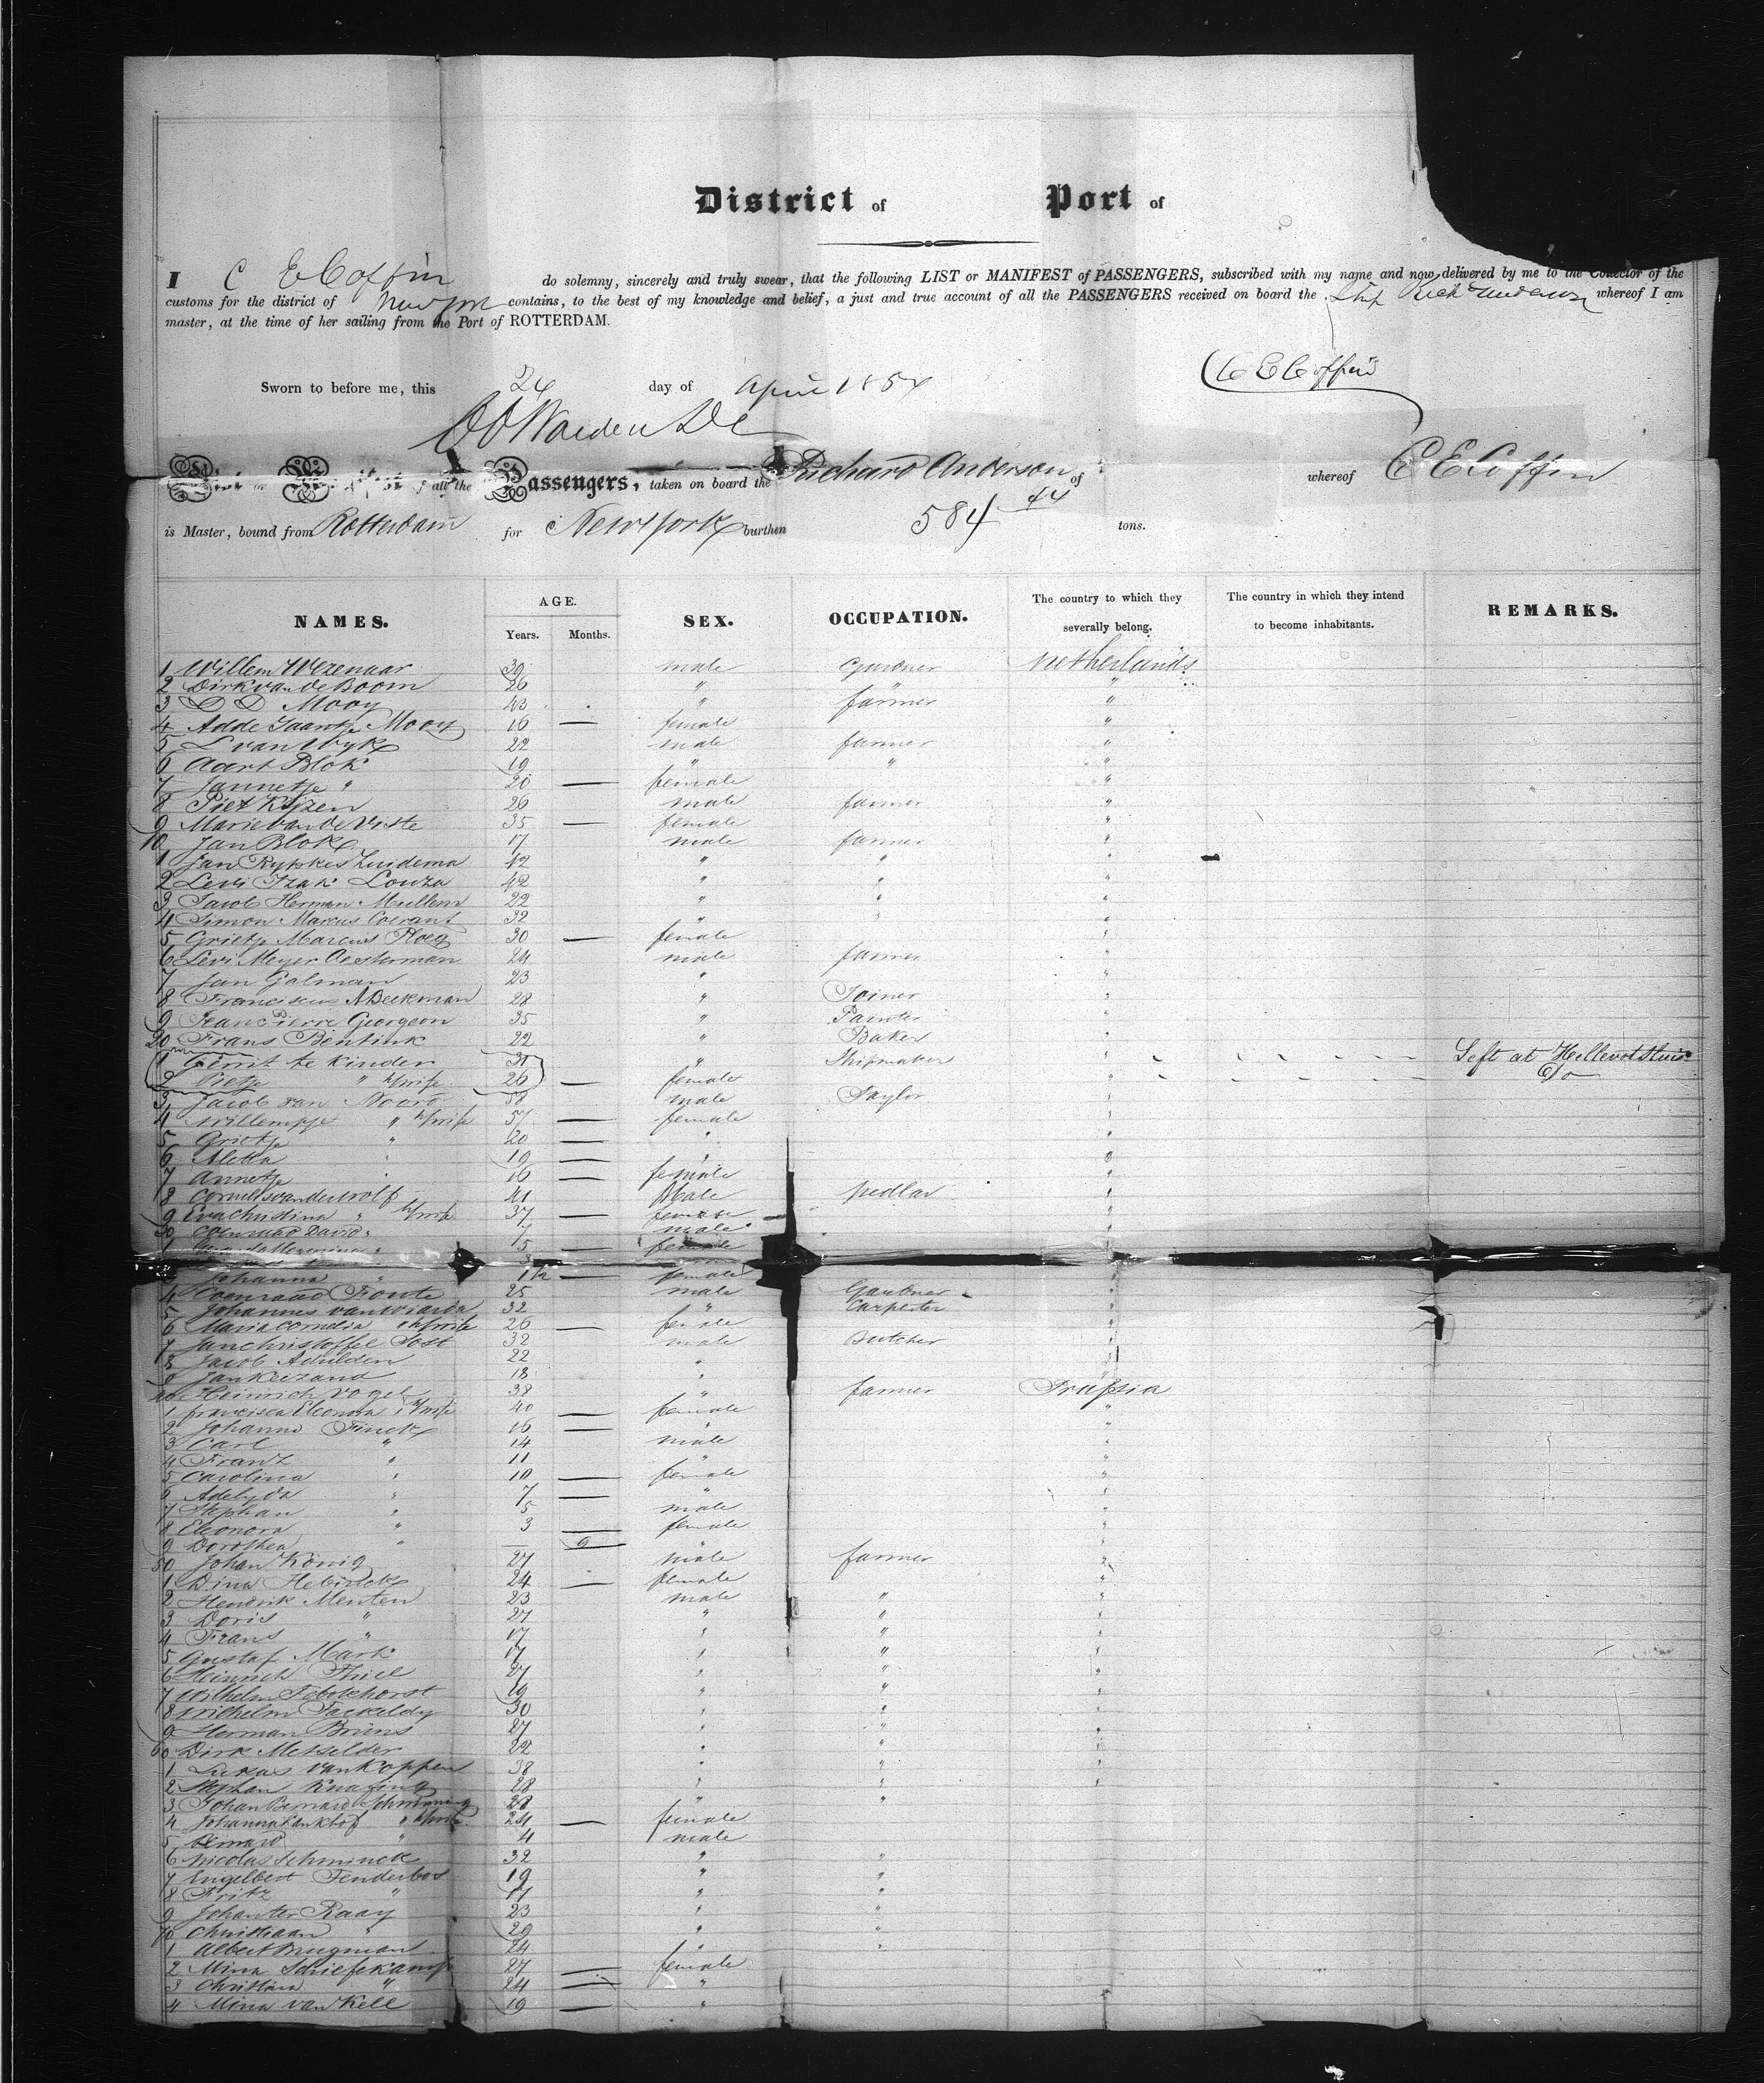 District of Port of
I C E Coffin do solemny, sincerely and truly swear, that the following LIST or MANIFEST of PASSENGERS, subscribed with my name and now delivered by me to the Collector of the
customs for the district of contains, to the best of my knowledge and belief, a just and true account of all the PASSENGERS received on board the Ship whereof I am
master, at the time of her sailing from the Port of ROTTERDAM.
C E Coffin
Sworn to before me, this 24 day of April 1854
List or Manifest of all the Passengers, taken on board the Richard Anderson of whereof C E Coffin
is Master, bound from Rotterdam for New York burthen 584 44 tons.
NAMES. AGE. Years. Months. SEX. OCCUPATION. The country to which they severally belong. The country in which they intend to become inhabitants. REMARKS.
1 Willem Wezenaar 39 male Gardner Netherlands
2 Dirk van de Boom 26 " " "
3 D D Mooy 43 " farmer "
4 Adde Jaantje Mooy 16 — female "
5 L van Wyk 22 male farmer "
6 Aart Blok 19 " " "
7 Jannetje " 20 — female "
8 Piet Kyzen 26 male farmer "
9 Marie van de Viste 35 — female "
10 Jan Blok 17 male farmer "
1 Jan Rypkes Zuidema 42 " " "
2 Levi Izak Louza 42 " " "
3 Jacob Herman Mullem 22 " " "
4 Simon Marcus Coerant 32 " " "
5 Grietje Marcus Ploeg 30 — female "
6 Levi Meyer Oosterman 24 male farmer "
7 Jan Galman 23 " "
8 Franciscus A Beekman 28 " Joiner "
9 Jean Pierre Georgeon 35 " Painter "
20 Frans Bentink 22 " Baker "
1 Gerrit te Kinder 31 " Shipmaker " Left at Hellevoetsluis
2 Pietje " h/wife 26 — female " Do
3 Jacob van Noord 58 male Taylor "
4 Willempje " h/wife 57 — female "
5 Grietje " 20 — " "
6 Aletta " 19 — " "
7 Annetje " 16 — female "
8 Cornelis van der Wolf 41 Male pedlar "
9 Eva Christina " h/wife 37 — female "
30 Coenraad David " 7 male "
1 5 — female
3 Johanna " 1½ — female "
4 Coenraad Fonte 25 male Gardner "
5 Johannes van Wiarda 32 " Carpenter "
6 Maria Cornelia " h/wife 26 — female "
7 Jan Christoffel Jost 32 male Butcher "
8 Jacob Adulden 22 " "
9 Jan Keezand 18 " "
40 Heinrich Vogel 38 " farmer Prussia
1 Francisca Eleonora " h/wife 40 — female "
2 Johanna Finck 16 — " "
3 Carl " 14 male "
4 Franz " 11 " "
5 Carolina " 10 — female "
6 Adelyda " 7 — " "
7 Stephan " 5 male "
8 Eleonora " 3 — female "
9 Dorothea " — 9 " "
50 Johan König 27 male farmer "
1 Dina 24 — female "
2 Hendrik Menten 23 male " "
3 Doris " 27 " " "
4 Frans " 17 " " "
5 Gustaf Mark 17 " " "
6 Heinrich Thiel 27 " " "
7 Wilhelm Tebokhorst 19 " " "
8 Wilhelm Tackeldy 30 " " "
9 Herman Bruns 27 " " "
60 Dirk Metselder 22 " " "
1 Lucas van Koppen 38 " " "
2 Stephan Knafing 28 " " "
3 Johan Bernard Schminning 28 " "
4 Johanna Lankhof " h/wife 24 — female
5 Bernard " 4 male
6 Nicolas Schminck 32 " "
7 Engelbert Tenderbos 19 " "
8 Fritz " 17 " "
9 Johan ter Raay 23 " "
70 Christiaan " 29 " "
1 Albert Brugman 24 " "
2 Mina Schiefekamp 27 — female
3 Christina " 24 — "
4 Mina van Kell 19 — "